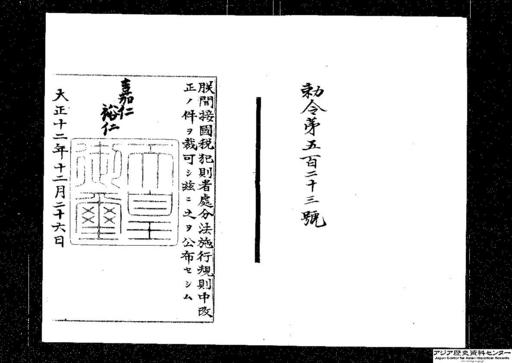 勅令第五百二十三號
朕間接國税犯則者處分法施行規則中改
正ノ件ヲ裁可シ玆ニ之ヲ公布セシム
嘉仁
裕仁
天皇御璽
大正十二年十二月二十六日
アジア歴史資料センター
Japan Center for Asian Historical Records